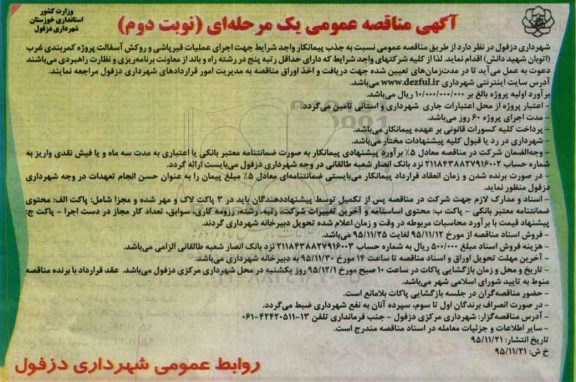 وزارت کشور
استانداری خوزستان
شهرداری دزفول
آگهی مناقصه عمومی یک مرحله‌ای (نوبت دوم)
شهرداری دزفول در نظر دارد از طریق مناقصه عمومی نسبت به جذب پیمانکار واجد شرایط جهت اجرای عملیات قیرپاشی و روکش آسفالت پروژه کمربندی غرب
(اتوبان شهید دانش) اقدام نماید. لذا از کلیه شرکتهای واجد شرایط که دارای حداقل رتبه پنج در رشته راه و باند از معاونت برنامه‌ریزی و نظارت راهبردی می‌باشند
دعوت به عمل می‌آید تا در مدت‌زمان‌های تعیین شده جهت دریافت و اخذ اوراق مناقصه به مدیریت امور قراردادهای شهرداری دزفول مراجعه نمایند.
آدرس سایت اینترنتی شهرداری www.dezful.ir می‌باشد.
برآورد اولیه پروژه بالغ بر ۱۰/۰۰۰/۰۰۰/۰۰۰ ریال می‌باشد.
- اعتبار پروژه از محل اعتبارات جاری شهرداری و استانی تامین می‌گردد.
- مدت اجرای پروژه ۶۰ روز می‌باشد.
- پرداخت کلیه کسورات قانونی بر عهده پیمانکار می‌باشد.
- شهرداری در رد یا قبول کلیه پیشنهادات مختار می‌باشد.
- وجه‌الضمان شرکت در مناقصه معادل ۵٪ برآورد پیشنهادی پیمانکار به صورت ضمانتنامه معتبر بانکی یا اعتباری به مدت سه ماه و یا فیش نقدی واریز به
شماره حساب ۲۱۱۸۴۳۸۸۲۷۹۱۶۰۰۲ نزد بانک انصار شعبه طالقانی در وجه شهرداری دزفول می‌بایست ارائه گردد.
- در صورت برنده شدن و زمان انعقاد قرارداد پیمانکار می‌بایستی ضمانتنامه‌ای معادل ۵٪ مبلغ پیمان را به عنوان حسن انجام تعهدات در وجه شهرداری
دزفول منظور نماید.
- اسناد و مدارک لازم جهت شرکت در مناقصه پس از تکمیل توسط پیشنهاددهندگان باید در ۳ پاکت لاک و مهر شده و مجزا شامل: پاکت الف: محتوی
ضمانتنامه معتبر بانکی - پاکت ب: محتوی اساسنامه و آخرین تغییرات شرکت، رتبه، رشته، رزومه کاری، سوابق، تعداد کار مجاز در دست اجرا - پاکت ج:
پیشنهاد قیمت با برآورد محاسبات مربوطه در وقت و زمان اعلام شده تحویل دبیرخانه شهرداری گردند.
- فروش اسناد مناقصه از مورخ ۹۵/۱۱/۱۲ لغایت ۹۵/۱۱/۲۵ می‌باشد.
- هزینه فروش اسناد مبلغ ۵۰۰/۰۰۰ ریال به شماره حساب ۲۱۱۸۴۳۸۸۲۷۹۱۶۰۰۳ نزد بانک انصار شعبه طالقانی الزامی می‌باشد.
- آخرین مهلت تحویل اوراق و اسناد مناقصه تا ساعت ۱۴ مورخ ۹۵/۱۱/۳۰ به دبیرخانه شهرداری می‌باشد.
- تاریخ و محل و زمان بازگشایی پاکات در ساعت ۱۰ صبح مورخ ۹۵/۱۲/۱ روز یکشنبه در محل شهرداری مرکزی دزفول می‌باشد. عقد قرارداد با برنده مناقصه
منوط به تایید شورای اسلامی شهر می‌باشد.
- حضور مناقصه‌گران در جلسه بازگشایی پاکات بلامانع است.
- در صورت انصراف برندگان اول تا سوم، سپرده آنان به نفع شهرداری ضبط می‌گردد.
- آدرس مناقصه‌گزار: شهرداری مرکزی دزفول - جنب فرمانداری تلفن ۱۳-۴۲۴۲۰۵۱۱-۰۶۱
- سایر اطلاعات و جزئیات معامله در اسناد مناقصه مندرج است.
تاریخ انتشار: ۹۵/۱۱/۲۱
خ ش: ۹۵/۱۱/۲۱
روابط عمومی شهرداری دزفول